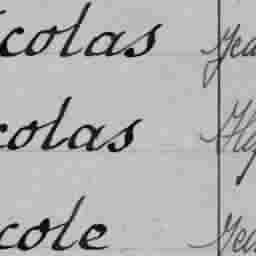 colas Jea
colas Hy
cole Jea